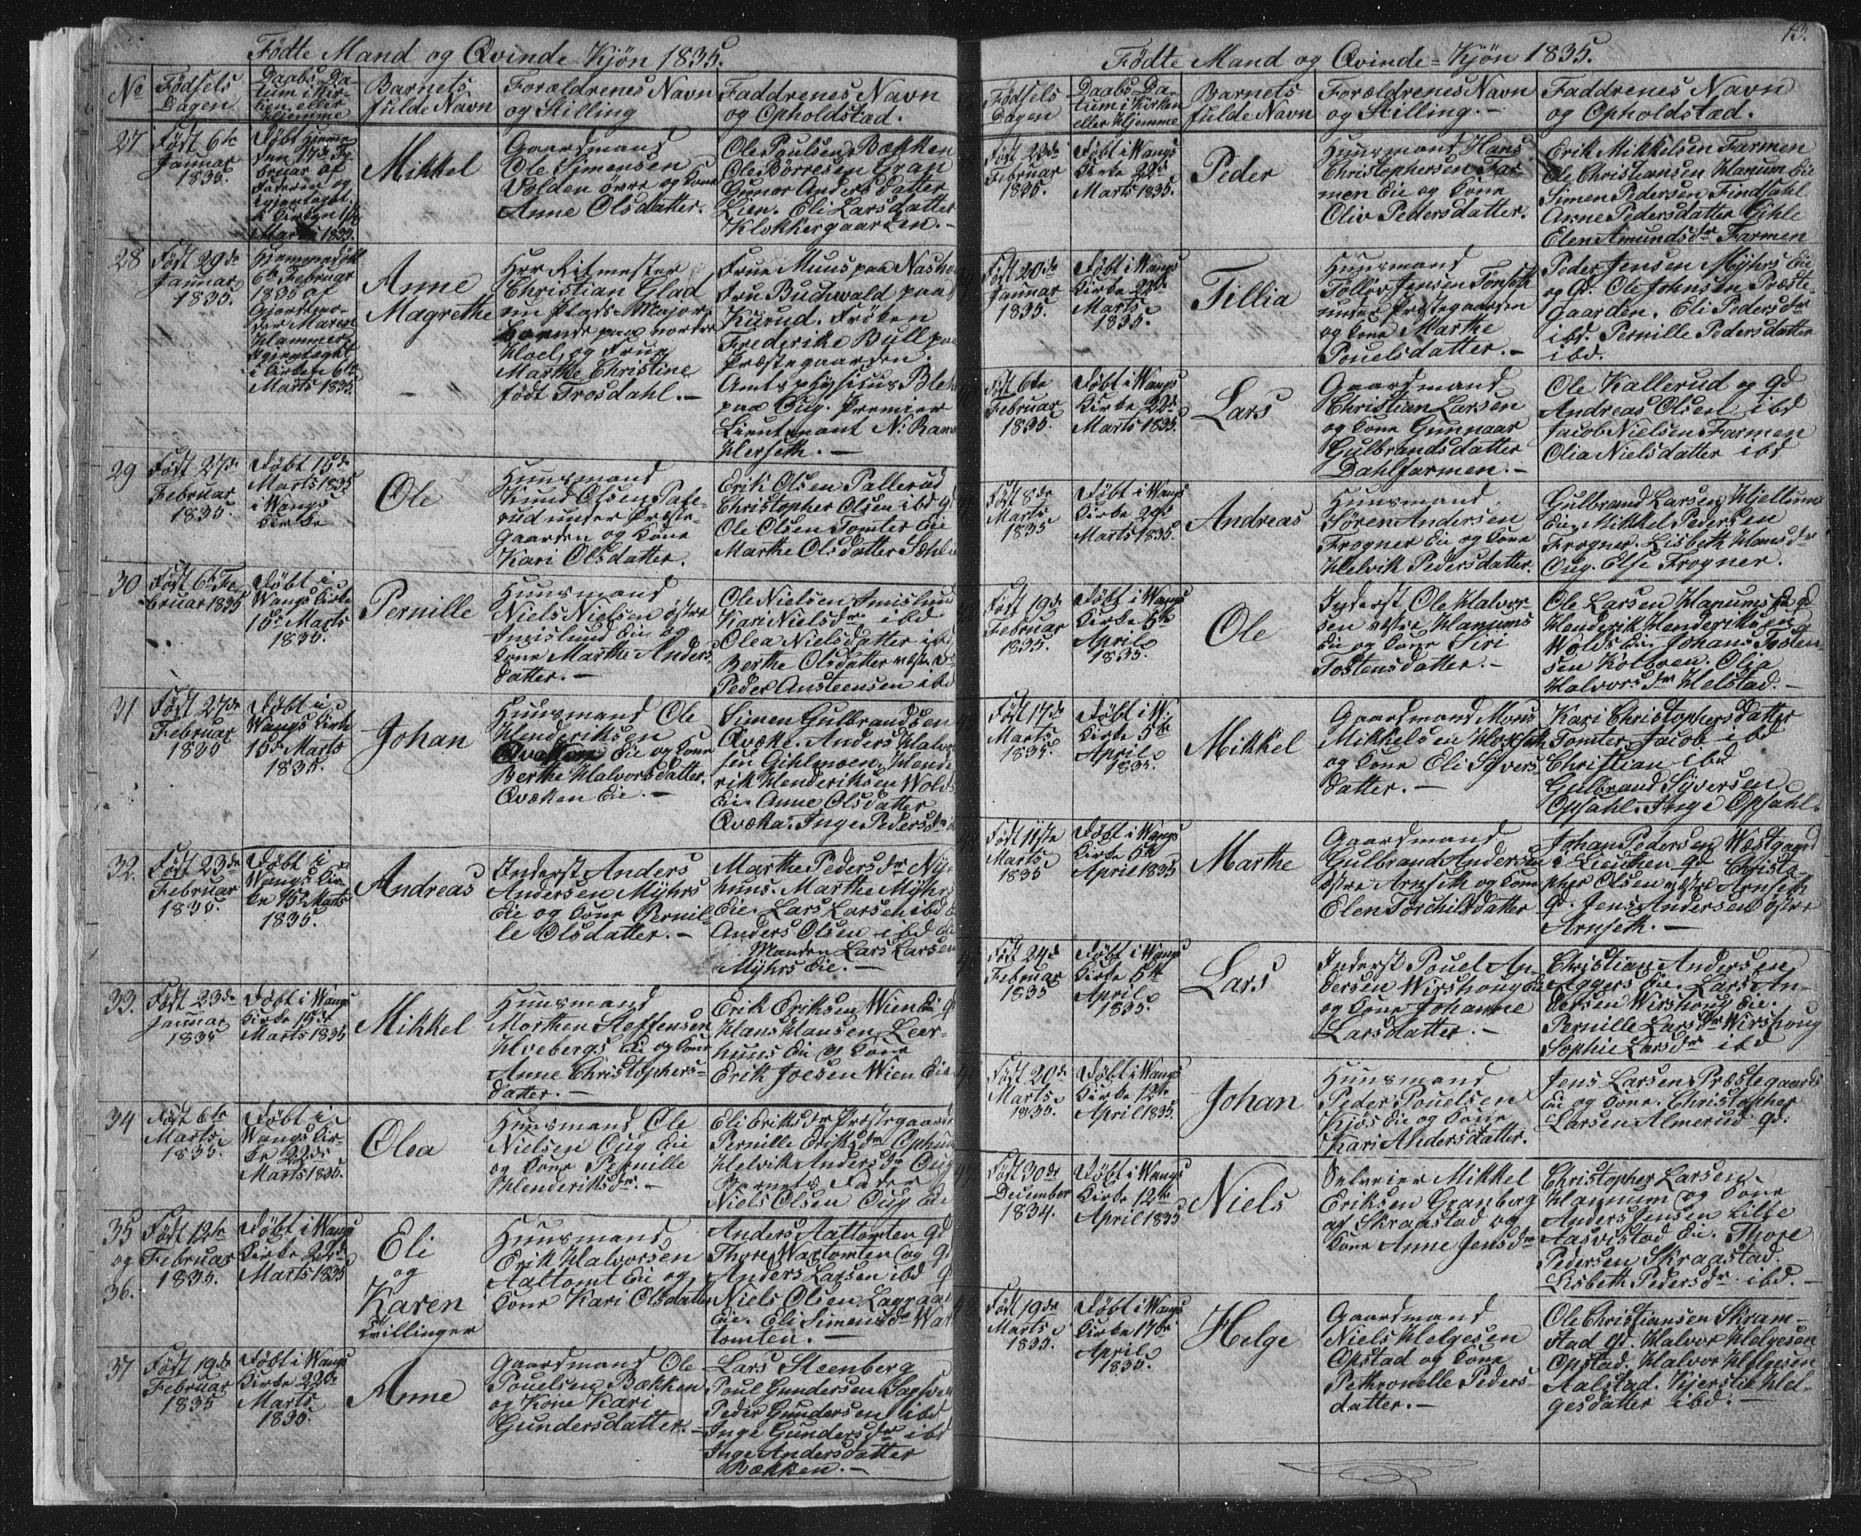 Fødte Mand og Qvinde-Kjøn 1835.
No
Fødsels
Dagen
Daabs Da-
tum i Kir-
ken eller
Hjemme
Barnets
fulde Navn
Forældrenes Navn
og Stilling
Faddrenes Navn
og Opholdstad.
27
Født 6te
Januar
1835.
Døbt hjemme
den 17de Fe
bruar af
Faderen og
igjentaget
i Kirken 1ste
Marts 1835.
Mikkel
Gaardmand
Ole Simensen
Volden øvre og Kone
Anne Olsdatter.
Ole Poulsen Bækken
Ole Børresen Gran
Gunor Anders datter
Lien. Eli Larsdatter
Klokkergaarden.
28
Født 29de
Januar
1835.
Hjemmedøbt
6te Februar
1835 af
Gjordemo-
der Maren
Hammer
igjentaget
i Kirken 6te
Marts 1835.
Anne
Magrethe
Herr Ritmester
Christian Glad
nu Plads-Major
paa nordre
Hoel, og Frue
Marthe Christine
født Trosdahl.
Frue Muus paa
Fru Buchwald paa
Kurud. Frøken
Frederike Bull paa
Præstegaarden.
Amtsphysicus
paa Oug. Premier
Lieutenant N:
Herseth.
29
Født 27de
Februar
1835.
Døbt 15de
Marts 1835
i Wangs
Kirke
Ole
Huusmand
Knud Olsen Pale-
rud under Præste-
gaarden og Kone
Kari Olsdatter.
Erik Olsen Pallerud
Christopher Olsen ibd
Ole Olsen Tomter Eie
Marthe Olsdatter
30
Født 6te Fe
bruar 1835
Døbt i
Wangs Kirke
15de Marts
1835.
Pernille
Huusmand
Niels Nielsen øster
Imislund Eie og
Kone Marthe Anders
datter.
Ole Nielsen
Kari Nielsdr ibd
Olea Nielsdatter ibd
Berthe Olsdatter
Peder Austeensen ibd
31
Født 27de
Februar
1835
Døbt i
Wangs Kirke
15de Marts
1835.
Johan
Huusmand Ole
Henderiksen
Eie og Kone
Berthe Halvorsdatter.
Qvæken Eie.
Simen Gulbrandsen
Qvæke. Anders Halvor
sen Gihlmoen, Hende
rik Henderiksen Wold
Eie. Anne Olsdatter
Qvæka. Inge Pedersdr
32.
Født 23de
Februar
1835.
Døbt i
Wangs Kir-
ke 15de Marts
1835.
Andreas
Inderst Anders
Andersen Myhrs
Eie og Kone Pernil-
le Olsdatter.
Marthe Pedersdr
huus. Marthe Myhrs
Eie. Lars Larsen ibd
Anders Olsen ibd
Manden Lars Larsen
Myhrs Eie.
33.
Født 23de
Januar
1835
Døbt i Wangs
Kirke 15de
Marts 1835
Mikkel
Huusmand
Morthen Steffensen
Hvebergs Eie og Kone
Anne Christophers-
datter.
Erik Eriksen Wien Eie
Hans Hansen Leer-
huus Eie og Kone
Erik Joesen Wien Eie
34
Født 6te
Marts
1835.
Døbt i
Wangs Kir-
ke 22de
Marts 1835.
Olea
Huusmand Ole
Nielsen Oug Eie
og Kone Pernille
Henderiksdr.
Eli Eriksdr Præstegaard
Pernille Eriksdr
Helvik Andersdr Oug
Barnets Fader
Niels Olsen Oug Eie
35
og
36.
Født 12te
Februar
1835.
Døbt i Wangs
Kirke 22de
Marts 1835
Eli
og
Karen
tvillinger
Huusmand,
Erik Halvorsen
Aaltomt Eie og
Kone Kari Olsdatter
Anders Aaltomten gd
Thore Waltomten og
Anders Larsen ibd
Niels Olsen
Eie. Eli Simensdr
tomten.
37
Født 19de
Februar
1835
Døbt i Wangs
Kirke 22de
Marts
1835.
Anne
Gaardmand Ole
Pouelsen Bækken
og Kone Kari
Gundersdatter.
Lars Steenberg
Poul Gundersen
Peder Gundersen ibd
Inge Gundersdr ibd
Inge Andersdatter
Bækken.
13.
Fødte Mand og Qvinde-Kjøn 1835.
Fødsels
Dagen
Daabs-Da-
tum i Kirken
eller Hjemme
Barnets
fulde Navn
Forældrenes Navn
og Stilling.
Faddrenes Navn
og Opholdstæd.
Født 23de
Februar
1835.
Døbt i Wangs
Kirke 22de
Marts 1835.
Peder
Huusmand Hans
Christophersen Far-
men Eie og Kone
Oliv Pedersdatter.
Erik Mikkelsen Farmen
Ole Christiansen Hanum Eie
Simen Pedersen Findsahl
Anne Pedersdatter Gihle
Elen Amundsdr Farmen
Født 20de
Januar
1835.
Døbt i Wangs
Kirke 22de
Marts
1835.
Tillia
Huusmand
Toller Jensen
under Præstegaarden
og Kone Marthe
Pouelsdatter.
Peder Jensen Myhrs Eie
og gd. Ole Johnsen Præste-
gaarden. Eli Pedersdr
ibd. Pernille Pedersdatter
ibd.
Født 6te
Februar
1835.
Døbt i Wangs
Kirke 22de
Marts 1835.
Lars
Gaardmand
Christian Larsen
og Kone Gunnaar
Gulbrandsdatter
Dahlfarmen.
Ole Kallerud og gd
Andreas Olsen ibd
Jacob Nielsen Farmen
Olia Nielsdatter ibd
Født 8de
Marts
1835
Døbt i Wangs
Kirke 29de
Marts 1835.
Andreas
Huusmand
Søren Andersen
Frogner Eie og Kone
Helvik Pedersdatter.
Gulbrand Larsen Hjellum
Eie. Mikkel Pedersen
Frogner. Lisbeth Hansdr
Oug. Else Frogner.
Født 19de
Februar
1835.
Døbt i Wangs
Kirke 5te
April
1835.
Ole
Inderst Ole Halvor-
sen vestre Hanums
Eie og Kone Siri
Tostensdatter.
Ole Larsen Hanums
Henderik Henderiksen
Wolds Eie. Johans Tosten-
sen Kolboen. Olia
Halvorsdr Helstad.
Født 17de
Marts
1835.
Døbt i W.
Kirke 5te
April
1835.
Mikkel
Gaardmand Mons
Mikkelsen
og Kone Eli Syvers
datter.
Kari Christophersdatter
Tomter. Jacob ibd
Christian ibd
Gulbrand Syversen
Opsahl. Inge Opsahl.
Født 11te
Marts
1835
Døbt i Wangs
Kirke 5te
April 1835
Marthe
Gaardmand
Gulbrand Andersen
østre Arnseth og Kone
Elen Torchilsdatter
Johan Pedersen Westgaard
i gd. Christo-
pher Olsen vestre Arnseth
gd. Jens Andersen østre
Arnseth.
Født 24de
Februar
1835
Døbt i Wangs
Kirke 5te
April
1835.
Lars
Inderst Pouel An-
dersen Wirshoug Eie
og Kone Johanne
Larsdatter.
Christian Andersen
Aggers Eie. Lars An-
dersen Wirshoug Eie.
Pernille Larsdr Wirshoug
Sophie Larsdr ibd
Født 20de
Marts
1835.
Døbt i Wangs
Kirke 12te
April 1835.
Johan
Huusmand
Peder Pouelsen
Kjøs Eie og Kone
Kari Andersdatter.
Jens Larsen Præstegaards
Eie og Kone. Christopher
Larsen Almerud gd.
Født 30de
December
1834.
Døbt i Wangs
Kirke 12te
April 1835
Niels
Selveier Mikkel
Eriksen Granberg
af Skraastad og
Kone Anne Jensdr
Christopher Larsen
Hannum og Kone
Anders Jensen Lille
Aasvestad Eie. Thore
Pedersen Skraastad.
Lisbeth Pedersdr ibd.
Født 19de
Marts
1835.
Døbt i Wangs
Kirke 17de
April
1835.
Helge
Gaardmand
Niels Helgesen
Opstad og Kone
Pethronelle Peders-
datter.
Ole Christiansen Skram-
stad gd. Halvor Helgesen
Opstad. Halvor Helgesen
Aalstad. Kjerstie Hel-
gesdatter ibd.